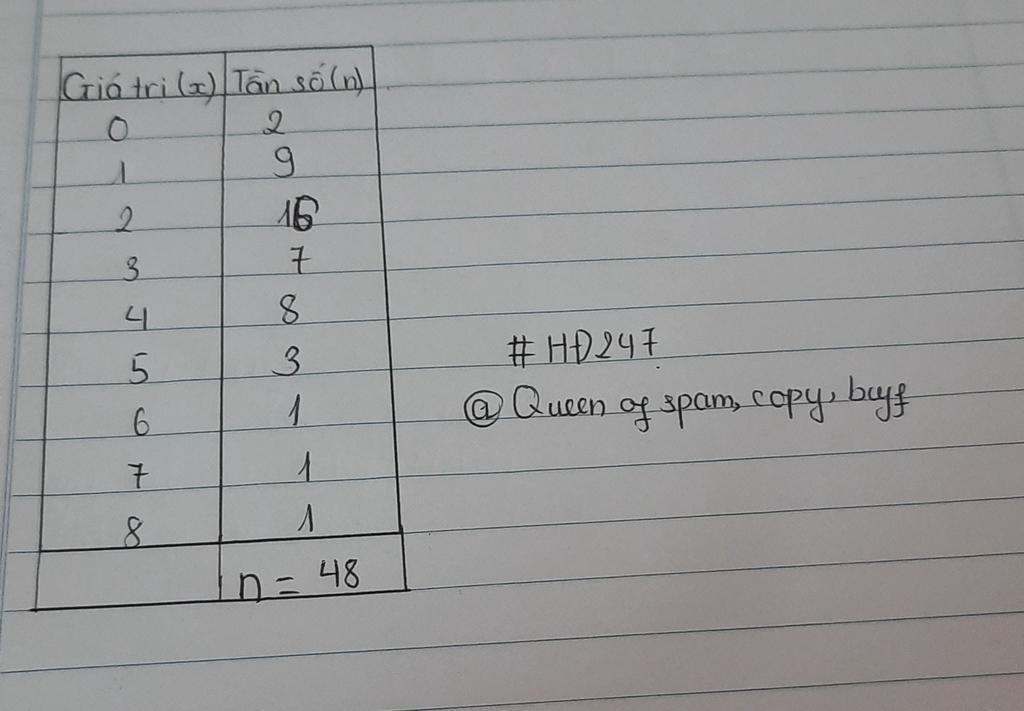 Giá trị (x) Tần số (n)
0 2
1 9
2 16
3 7
4 8
5 3
6 1
7 1
8 1
n = 48
#HĐ247
@ Queen of spam, copy, buff